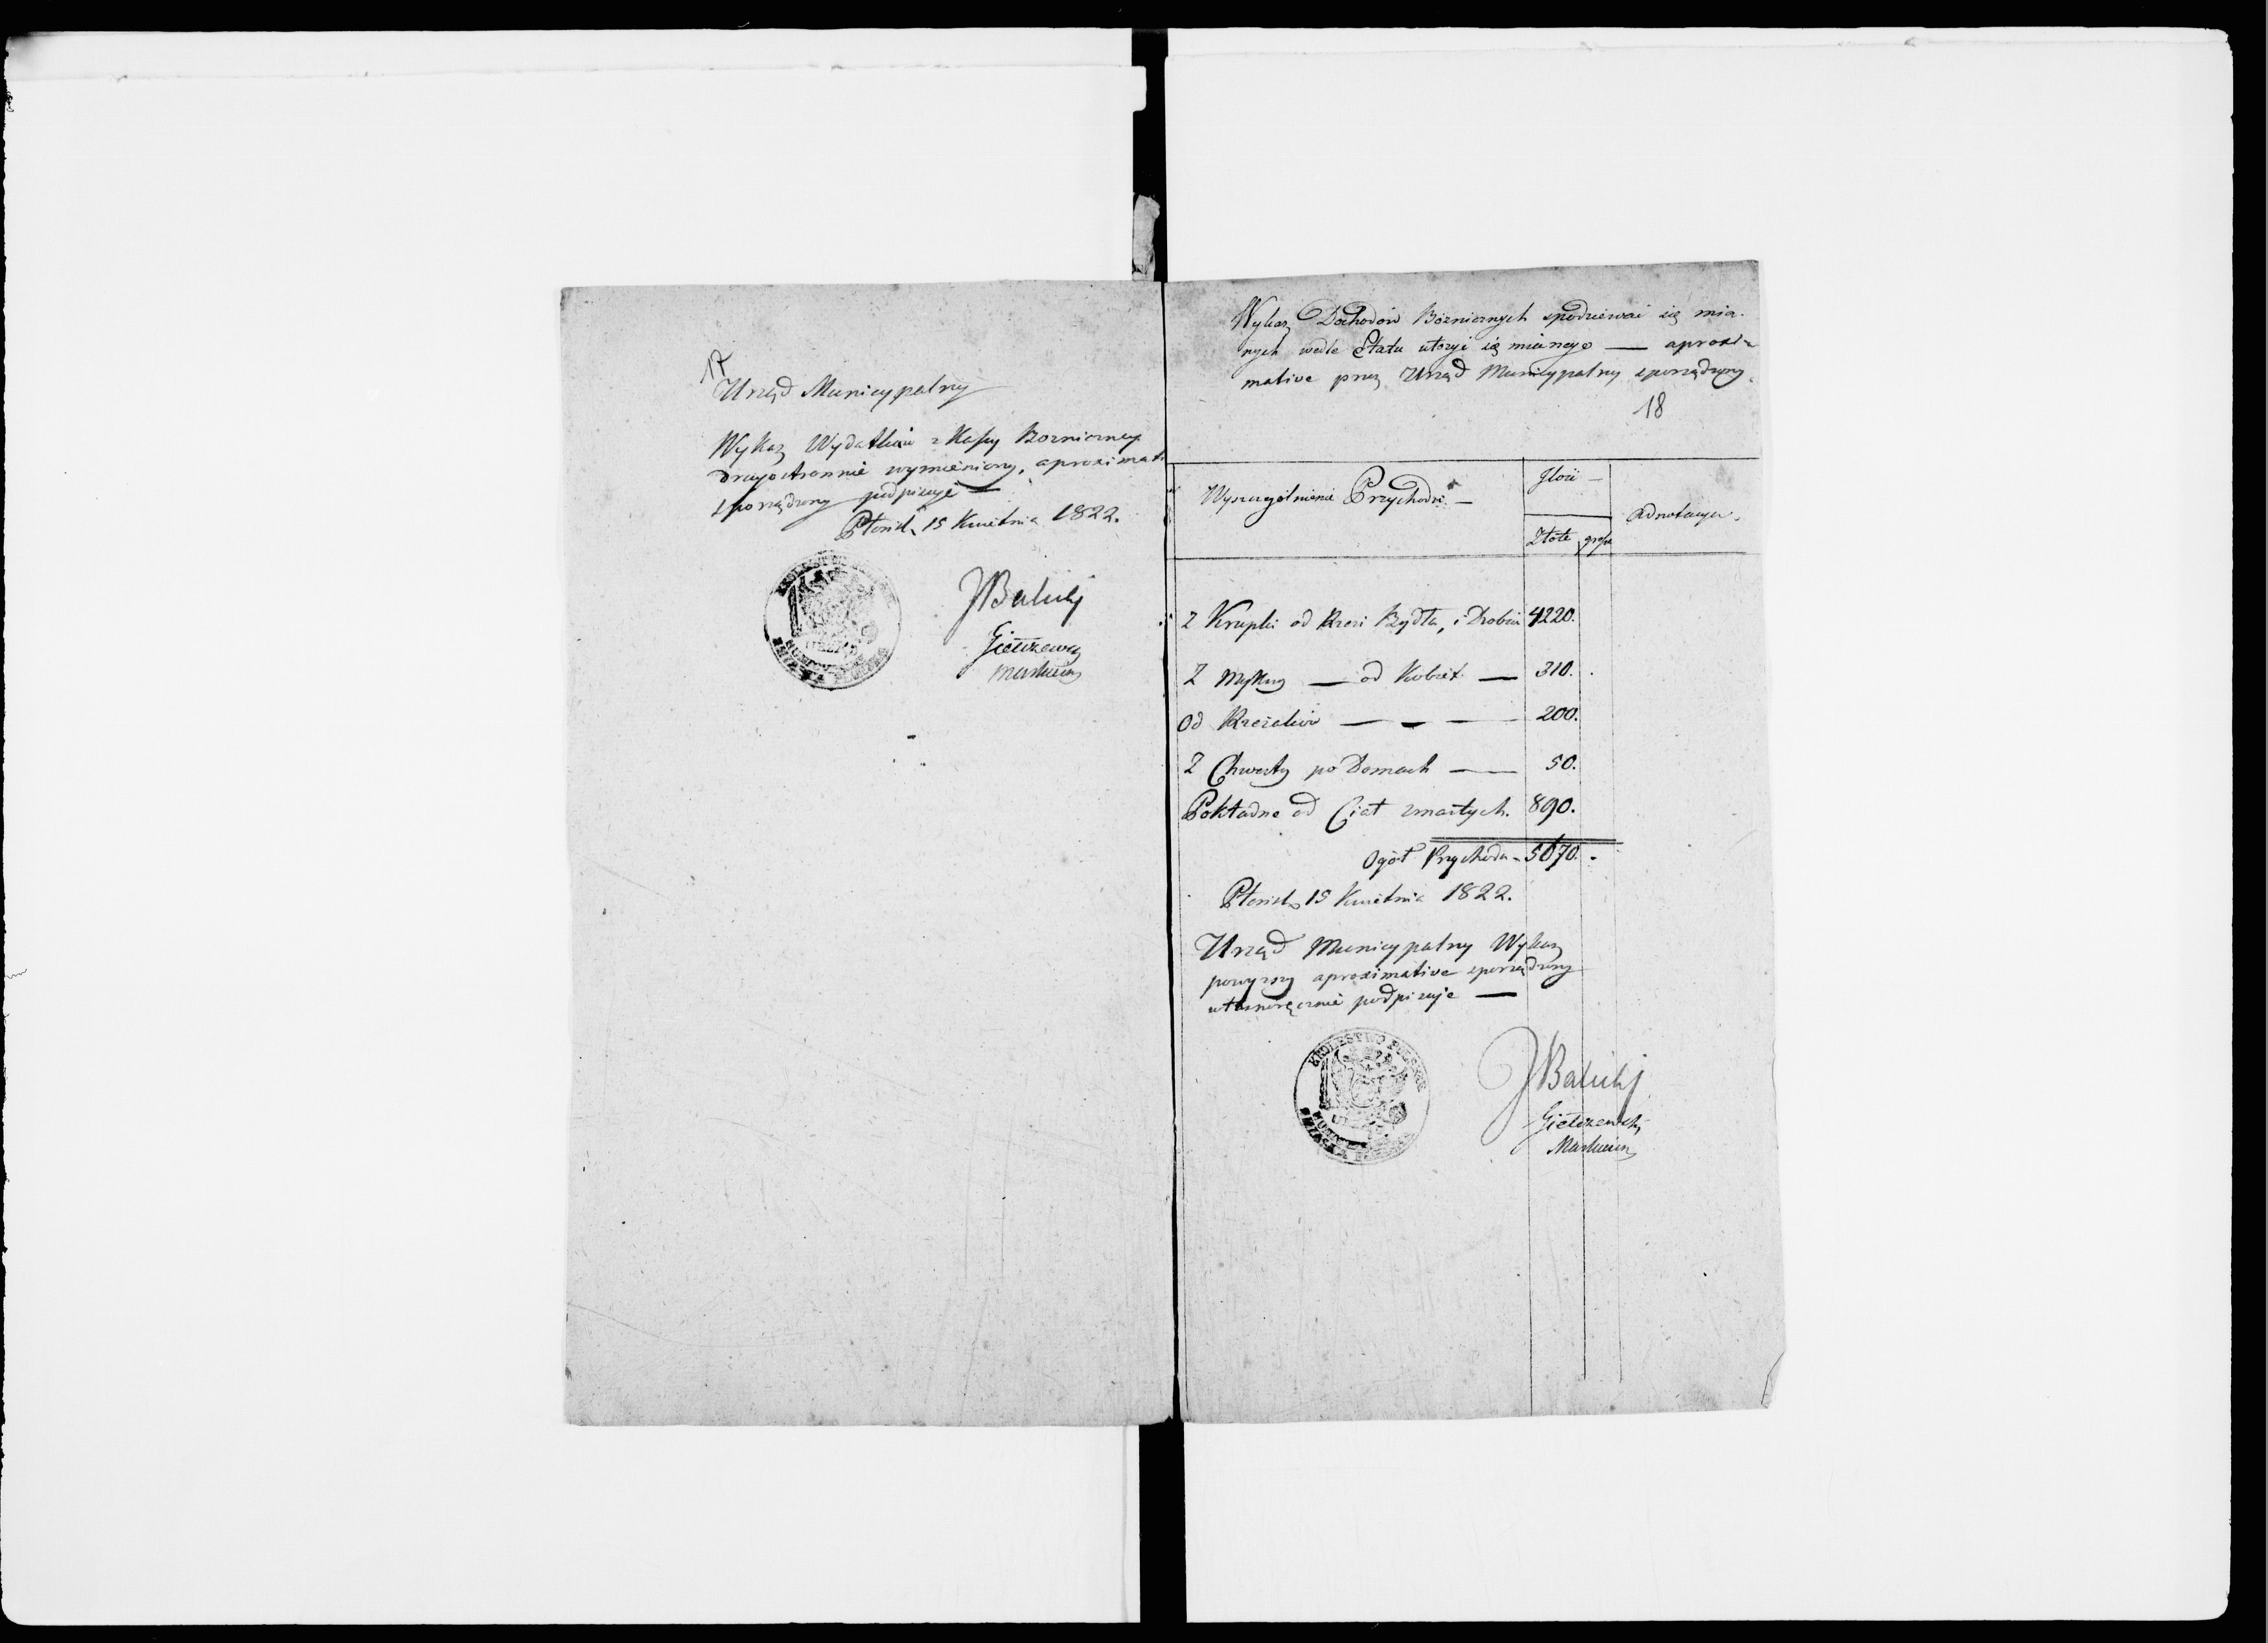 17
Urząd Municypalny
Wykaz Wydatków z Kassy Bozniczney
drugostronnie wymieniony, aproximat.
sporządzony podpisuje —
Płońsk 15 Kwietnia 1822.
JBalicki
Giełczews
Wykaz Dochodów Boznicznych spodziewać się mia-
nych wedle Etatu utożyć się mianego — aproxi-
mative przez Urząd Municypalny sporządzony.
18
Wyszczególnienie Przychodu —
Ilość —
Złote
grosze
Adnotacya.
Z Krupki od Rzezi Bydła, i Drobiu 4220.
Z Mykwy — od Kobiet — 310.
Od Rzezaków — — — 200.
Z Chwesty po Domach — 50.
Pokładne od Ciał zmarłych. 890.
Ogół Przychodu - 5670. -
Płońsk 15 Kwietnia 1822.
Urząd Municypalny Wykaz
powyzszy aproximative sporządzony
własnoręcznie podpisuje —
KROLESTWO POLSKIE
JBalicki
Giełczewski